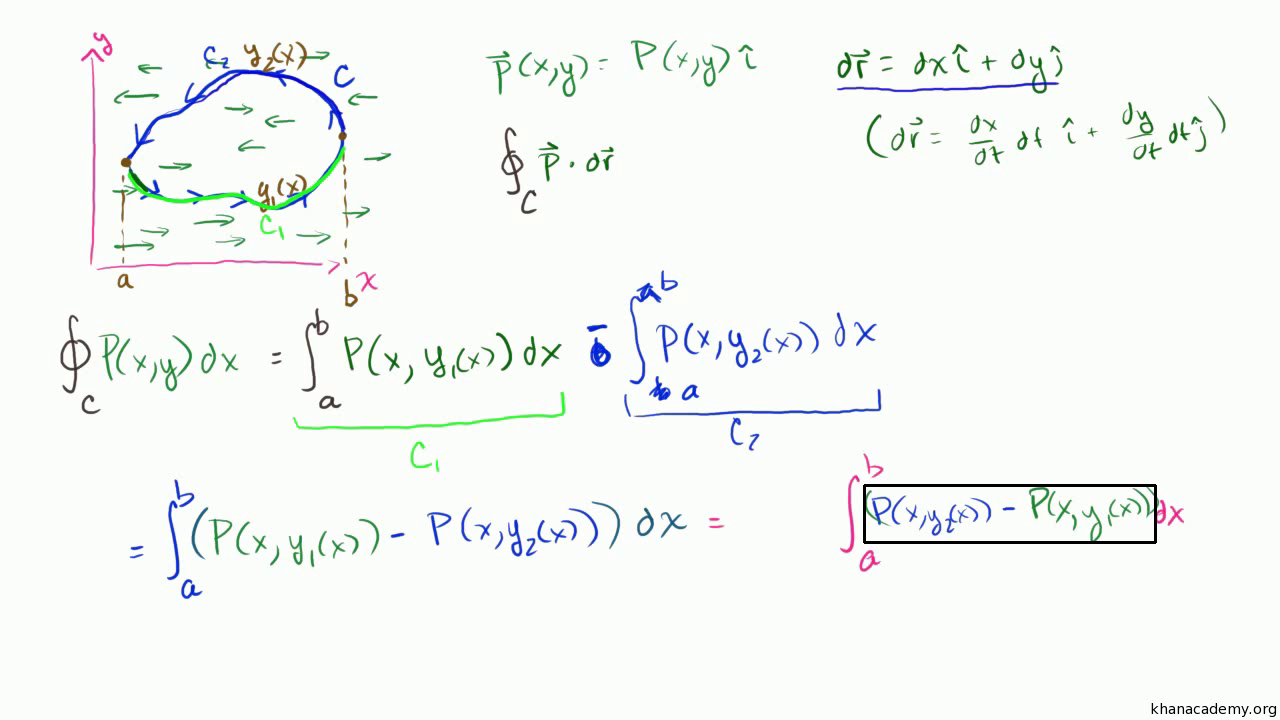 y
C₂ y₂(x)
C
y₁(x)
C₁
a
b x
P⃗(x,y) = P(x,y) î
dr⃗ = dx î + dy ĵ
(dr⃗ = dx/dt dt î + dy/dt dt ĵ)
∮_C P⃗ · dr⃗
∮_C P(x,y) dx = ∫_a^b P(x, y₁(x)) dx - ∫_a^b P(x, y₂(x)) dx
C₁
C₂
= ∫_a^b (P(x, y₁(x)) - P(x, y₂(x))) dx = ∫_a^b (P(x, y₂(x)) - P(x, y₁(x))) dx
khanacademy.org